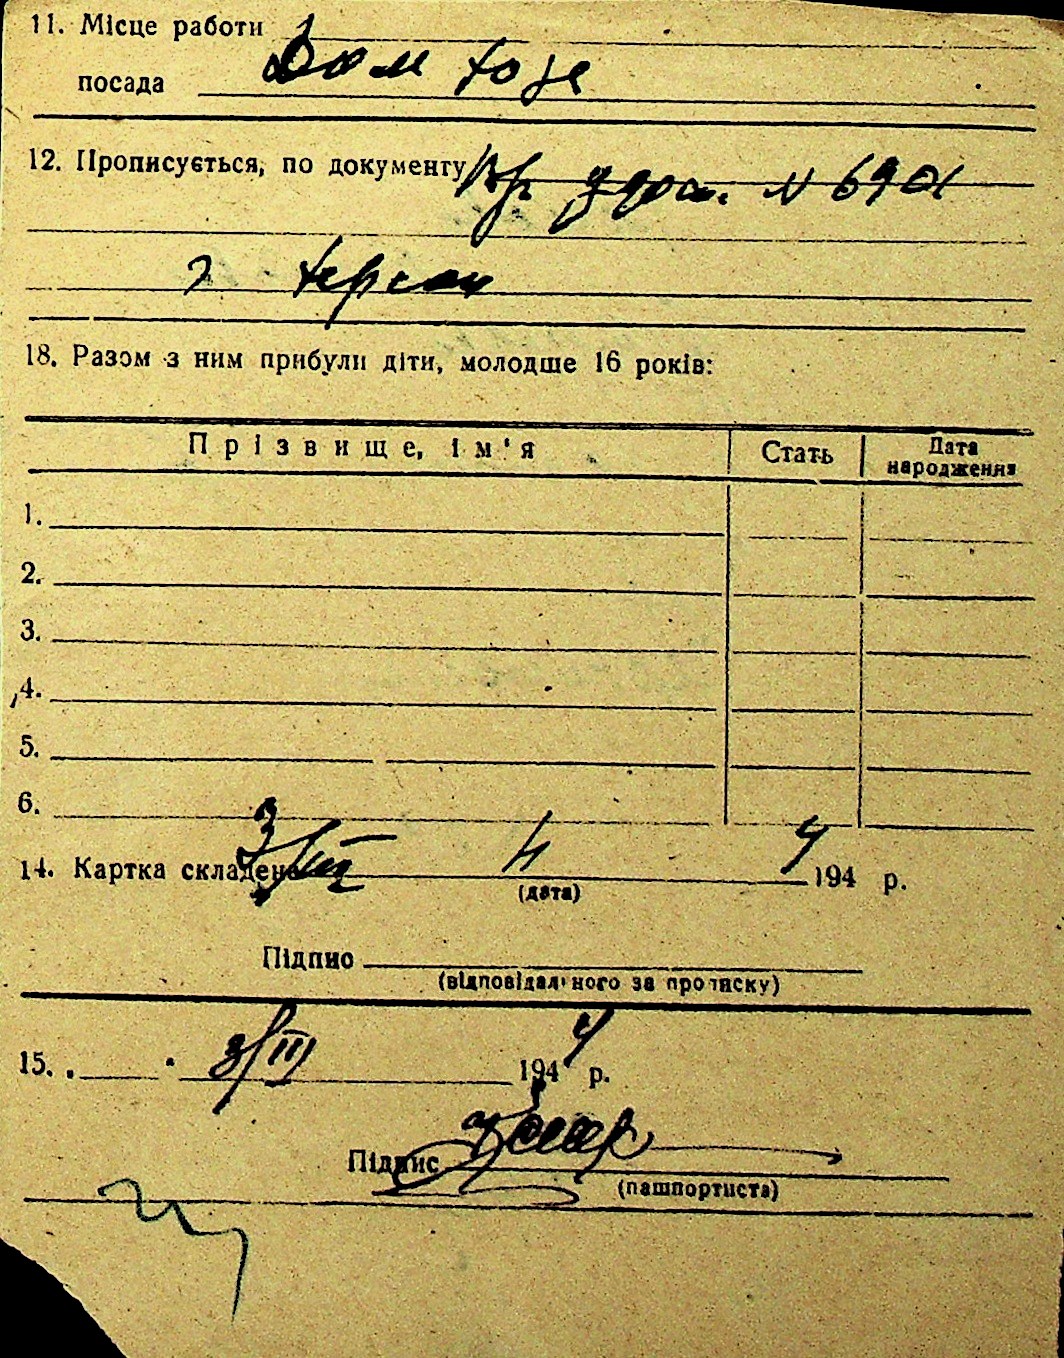 11. Місце работи
Дом хозе
посада
12. Прописується, по документу Вр удост. N 6901
г Херсон
18. Разом з ним прибули діти, молодше 16 років:
Прізвище, ім'я Стать Дата народження
1.
2.
3.
4.
5.
6.
14. Картка складена 3/III 4 194 р.
(дата)
Підпис
(відповідального за прописку)
15. 3/III 1944 р.
Підпис
(пашпортиста)